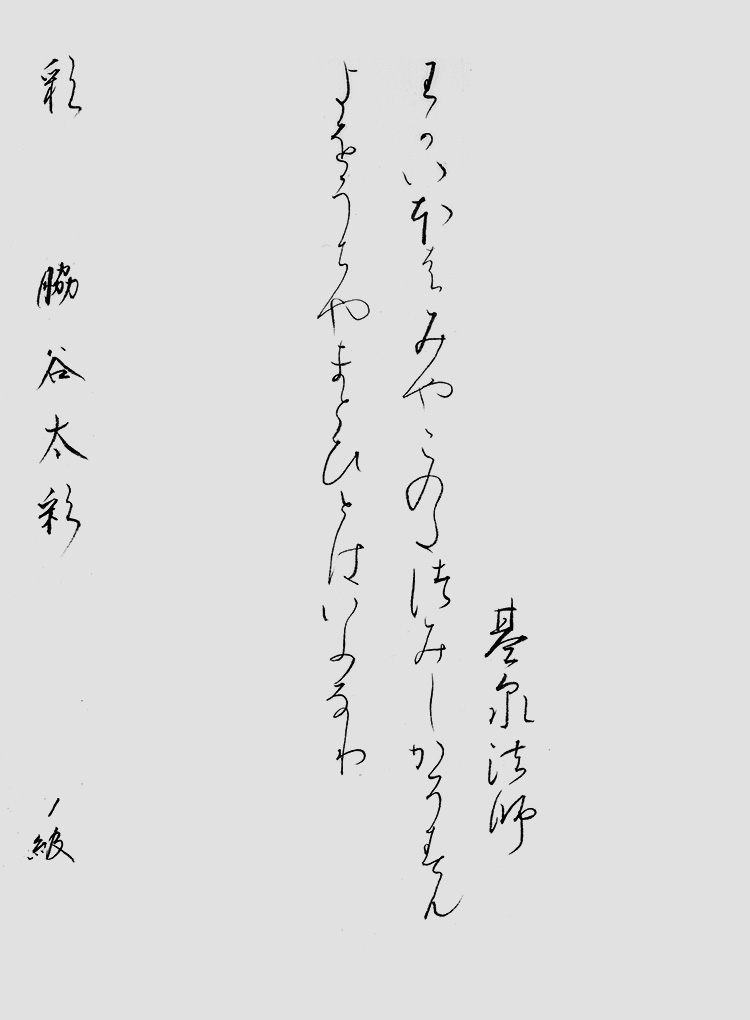 基泉法師
わかいほはみやこのたつみしかそすむ
よをうちやまとひとはいふなり
彩 脇谷太彩 1級